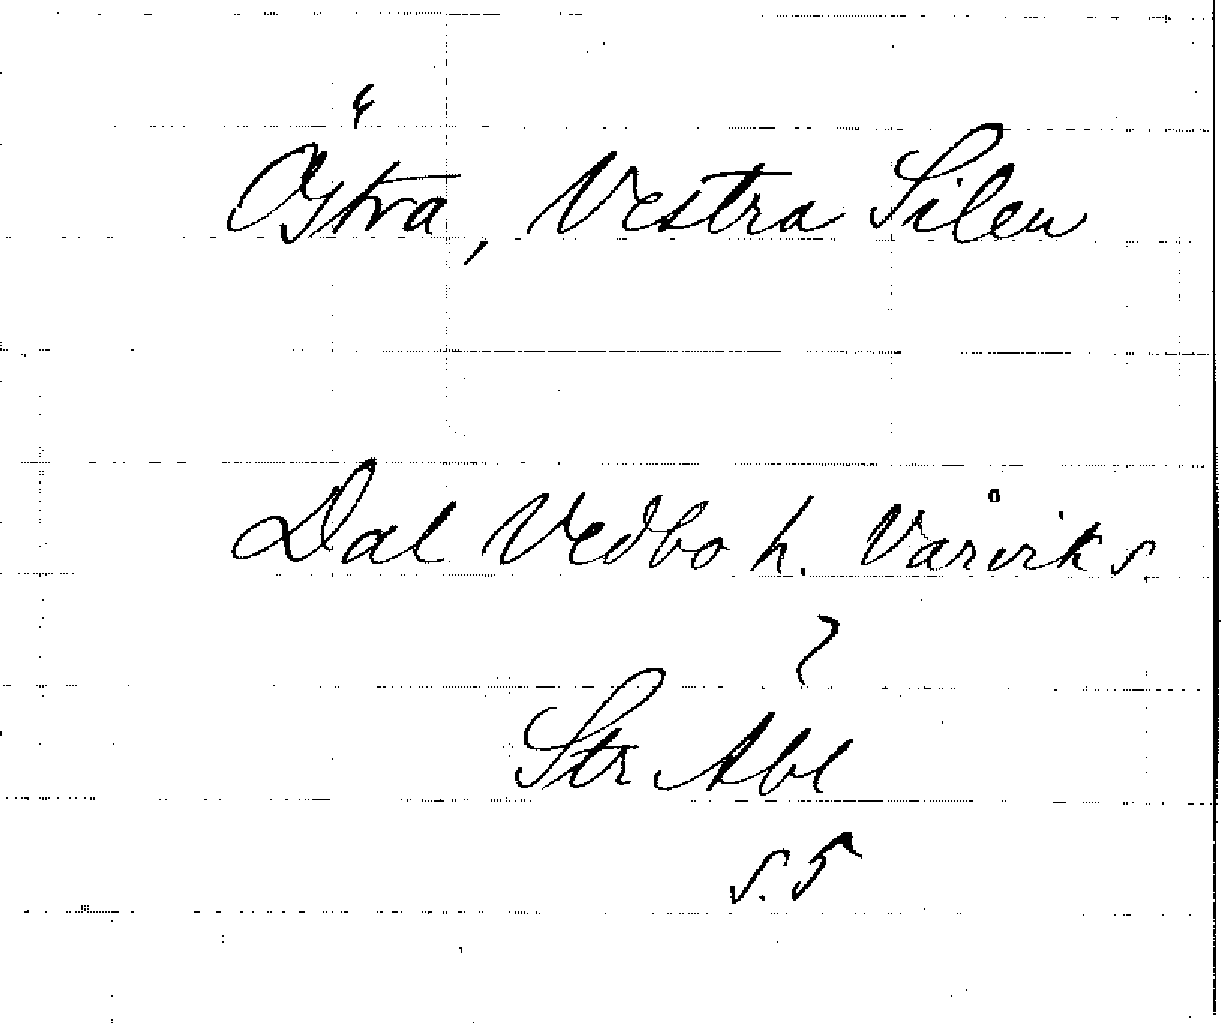 Östra, Vestra Silen
Dal Vedbo h. Vårviks s.
Str Abl
s. 5